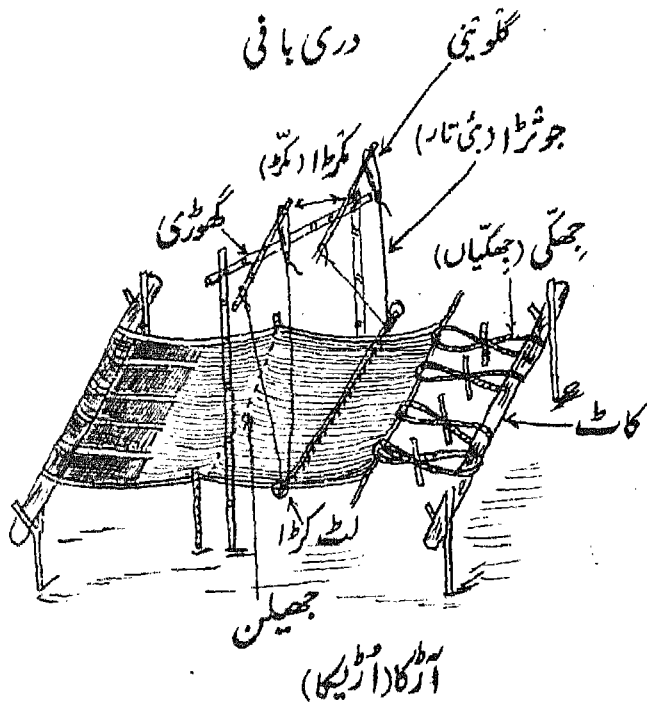 دری بافی
گلوٹنی
جوثڑا (بئی تار)
کڑا (کڑ)
گھوڑی
جھکّی (جھکیّاں)
کاٹ
لٹ کڑا
جھیلن
آڑکا (اُڑیکا)